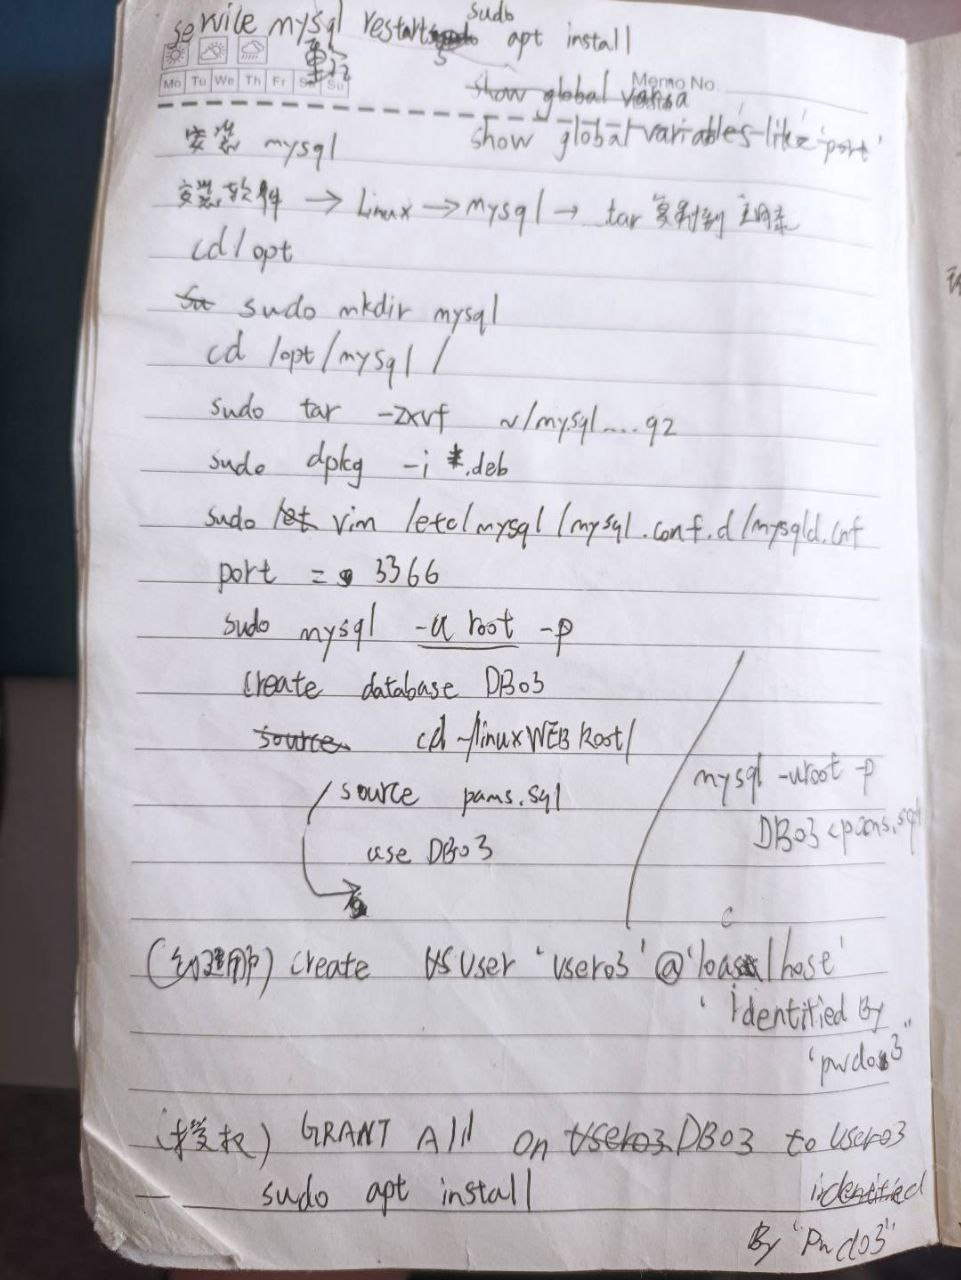 service mysql restart sudo apt install
重启
Mo Tu We Th Fr Sa Su
Memo No.
show global varisa
show global variables like 'port'
安装 mysql
安装软件 → Linux → mysql → tar 复制到 主目录
cd /opt
su sudo mkdir mysql
cd /opt/mysql/
sudo tar -zxvf ~/mysql....gz
sudo dpkg -i *.deb
sudo let vim /etc/mysql/mysql.conf.d/mysqld.cnf
port = 3366
sudo mysql -u root -p
create database DB03
source cd ~/linuxWEBRoot/
source pams.sql
use DB03
mysql -uroot -p
DB03 <pams.sql
(创建用户) create us user 'user03'@'localhost'
identified By
"pwd03"
(授权) GRANT All on user03 DB03 to user03
sudo apt install
identified
By "Pwd03"